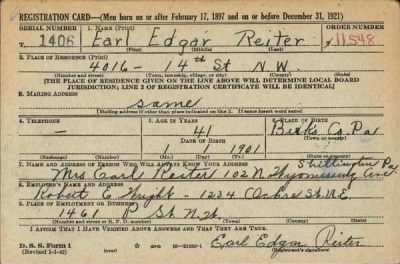 REGISTRATION CARD—(Men born on or after February 17, 1897 and on or before December 31, 1921)
SERIAL NUMBER 1. NAME (Print) ORDER NUMBER
T. 1406 Earl Edgar Reiter 11548
(First) (Middle) (Last)
2. PLACE OF RESIDENCE (Print)
4016 - 14th St N.W.
(Number and street) (Town, township, village, or city) (County) (State)
[THE PLACE OF RESIDENCE GIVEN ON THE LINE ABOVE WILL DETERMINE LOCAL BOARD
JURISDICTION; LINE 2 OF REGISTRATION CERTIFICATE WILL BE IDENTICAL]
3. MAILING ADDRESS
same
[Mailing address if other than place indicated on line 2. If same insert word same]
4. TELEPHONE 5. AGE IN YEARS 6. PLACE OF BIRTH
- 41 Berks Co. Pa
DATE OF BIRTH
1 1901
(Exchange) (Number) (Mo.) (Day) (Yr.) (State or country)
7. NAME AND ADDRESS OF PERSON WHO WILL ALWAYS KNOW YOUR ADDRESS Shillington Pa
Mrs Carl Reiter 102 N Wyomissing Ave
8. EMPLOYER'S NAME AND ADDRESS
Robert C Wright - 1234 St. N.E.
9. PLACE OF EMPLOYMENT OR BUSINESS
1461 P St. N.W.
(Number and street or R. F. D. number) (Town) (County) (State)
I AFFIRM THAT I HAVE VERIFIED ABOVE ANSWERS AND THAT THEY ARE TRUE.
D. S. S. Form 1
(Revised 1-1-42) Earl Edgar Reiter
(Registrant's signature)